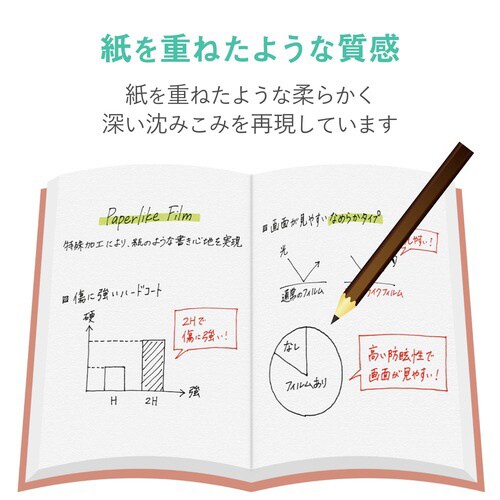 紙を重ねたような質感
紙を重ねたような柔らかく
深い沈みこみを再現しています
Paperlike Film
特殊加工により、紙のような書き心地を実現
傷に強いハードコート
硬
2Hで
傷に強い!
H
2H
強
画面が見やすいなめらかタイプ
光
やすい!
通常のフィルム
イクフィルム
なし
フィルムあり
高い防眩性で
画面が見やすい!